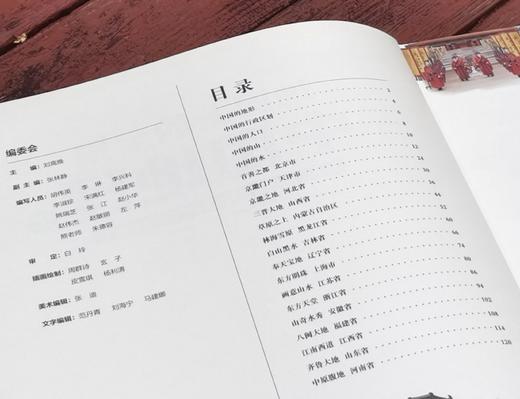 编委会
主 编 刘高焕
副主编 张林静
编写人员 胡伟英 李 琳 李兴科
李淑珍 宋满红 杨建军
姚瑞芝 张 江 赵小华
赵伟杰 赵徽丽 左 萍
熊老师 朱瑭容
审 定 白 玲
插画绘制 周群诗 玄 子
皮雪琪 杨利涛
美术编辑 张 迪
文字编辑 范丹青 刘海宁 马建娜
目录
中国的地形 2
中国的行政区划 4
中国的人口 6
中国的山 8
中国的水 10
首善之都 北京市 12
京畿门户 天津市 24
京畿之地 河北省 30
三晋大地 山西省 36
草原之上 内蒙古自治区 44
林海雪原 黑龙江省 50
白山黑水 吉林省 60
奉天宝地 辽宁省 66
东方明珠 上海市 74
画意山水 江苏省 80
东方天堂 浙江省 88
山奇水秀 安徽省 94
八闽大地 福建省 102
江南西道 江西省 108
齐鲁大地 山东省 114
中原腹地 河南省 120